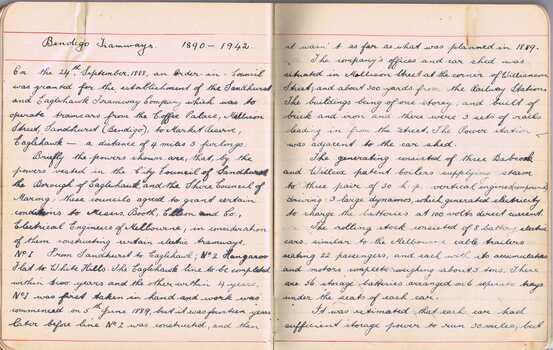 Bendigo Tramways. 1890-1942.
On the 24th September, 1888, an Order-in-Council
was granted for the establishment of the Sandhurst
and Eaglehawk Tramway Company which was to
operate tramcars from the Coffee Palace, Mollison
Street, Sandhurst (Bendigo), to Market Reserve,
Eaglehawk — a distance of 4 miles 3 furlongs.
Briefly the powers shown are, that by the
powers vested in the City Council of Sandhurst
the Borough of Eaglehawk and the Shire Council of
Marong, these councils agreed to grant certain
conditions to Messrs. Booth, Ellson and Co.,
Electrical Engineers of Melbourne, in consideration
of them constructing certain electric tramways.
No 1 From Sandhurst to Eaglehawk; No 2 Kangaroo
Flat to White Hills. The Eaglehawk line to be completed
within two years and the other within 4 years.
No 1 was first taken in hand and work was
commenced on 5th June 1889, but it was fourteen years
later before line No 2 was constructed, and then
it wasn't as far as what was planned in 1889.
The company's offices and car shed was
situated in Mollison Street at the corner of Williamson
Street; and about 300 yards from the Railway Station.
The buildings being of one storey; and built of
brick and iron and there were 3 sets of rails
leading in from the street. The Power station
was adjacent to the car shed.
The generating consisted of three Babcock
and Willcox patent boilers supplying steam
to three pair of 30 h.p. vertical engines (compound)
driving 3 large dynamos, which generated electricity
to charge the batteries at 100 volts direct current.
The rolling stock consisted of 8 battery electric
cars, similar to the Melbourne cable trailers
seating 22 passengers, and each with its accumulators
and motors complete weighing about 5 tons. There
are 96 storage batteries arranged on 6 separate trays
under the seats of each car.
It was estimated that each car had
sufficient storage power to run 30 miles, but